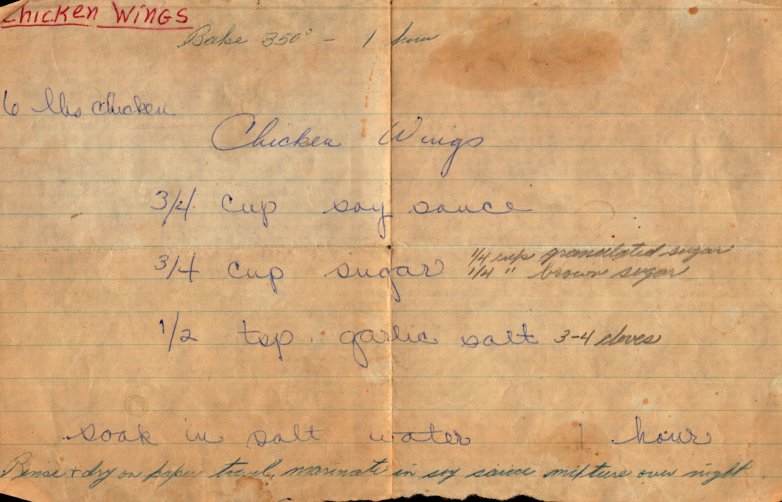 Chicken Wings
Bake 350° - 1 hour
6 lbs chicken
Chicken Wings
3/4 cup soy sauce
3/4 cup sugar 1/4 cup granulated sugar
1/4 " brown sugar
1/2 tsp. garlic salt 3-4 cloves
soak in salt water 1 hour
Rinse + dry on paper towel, marinate in soy sauce mixture over night